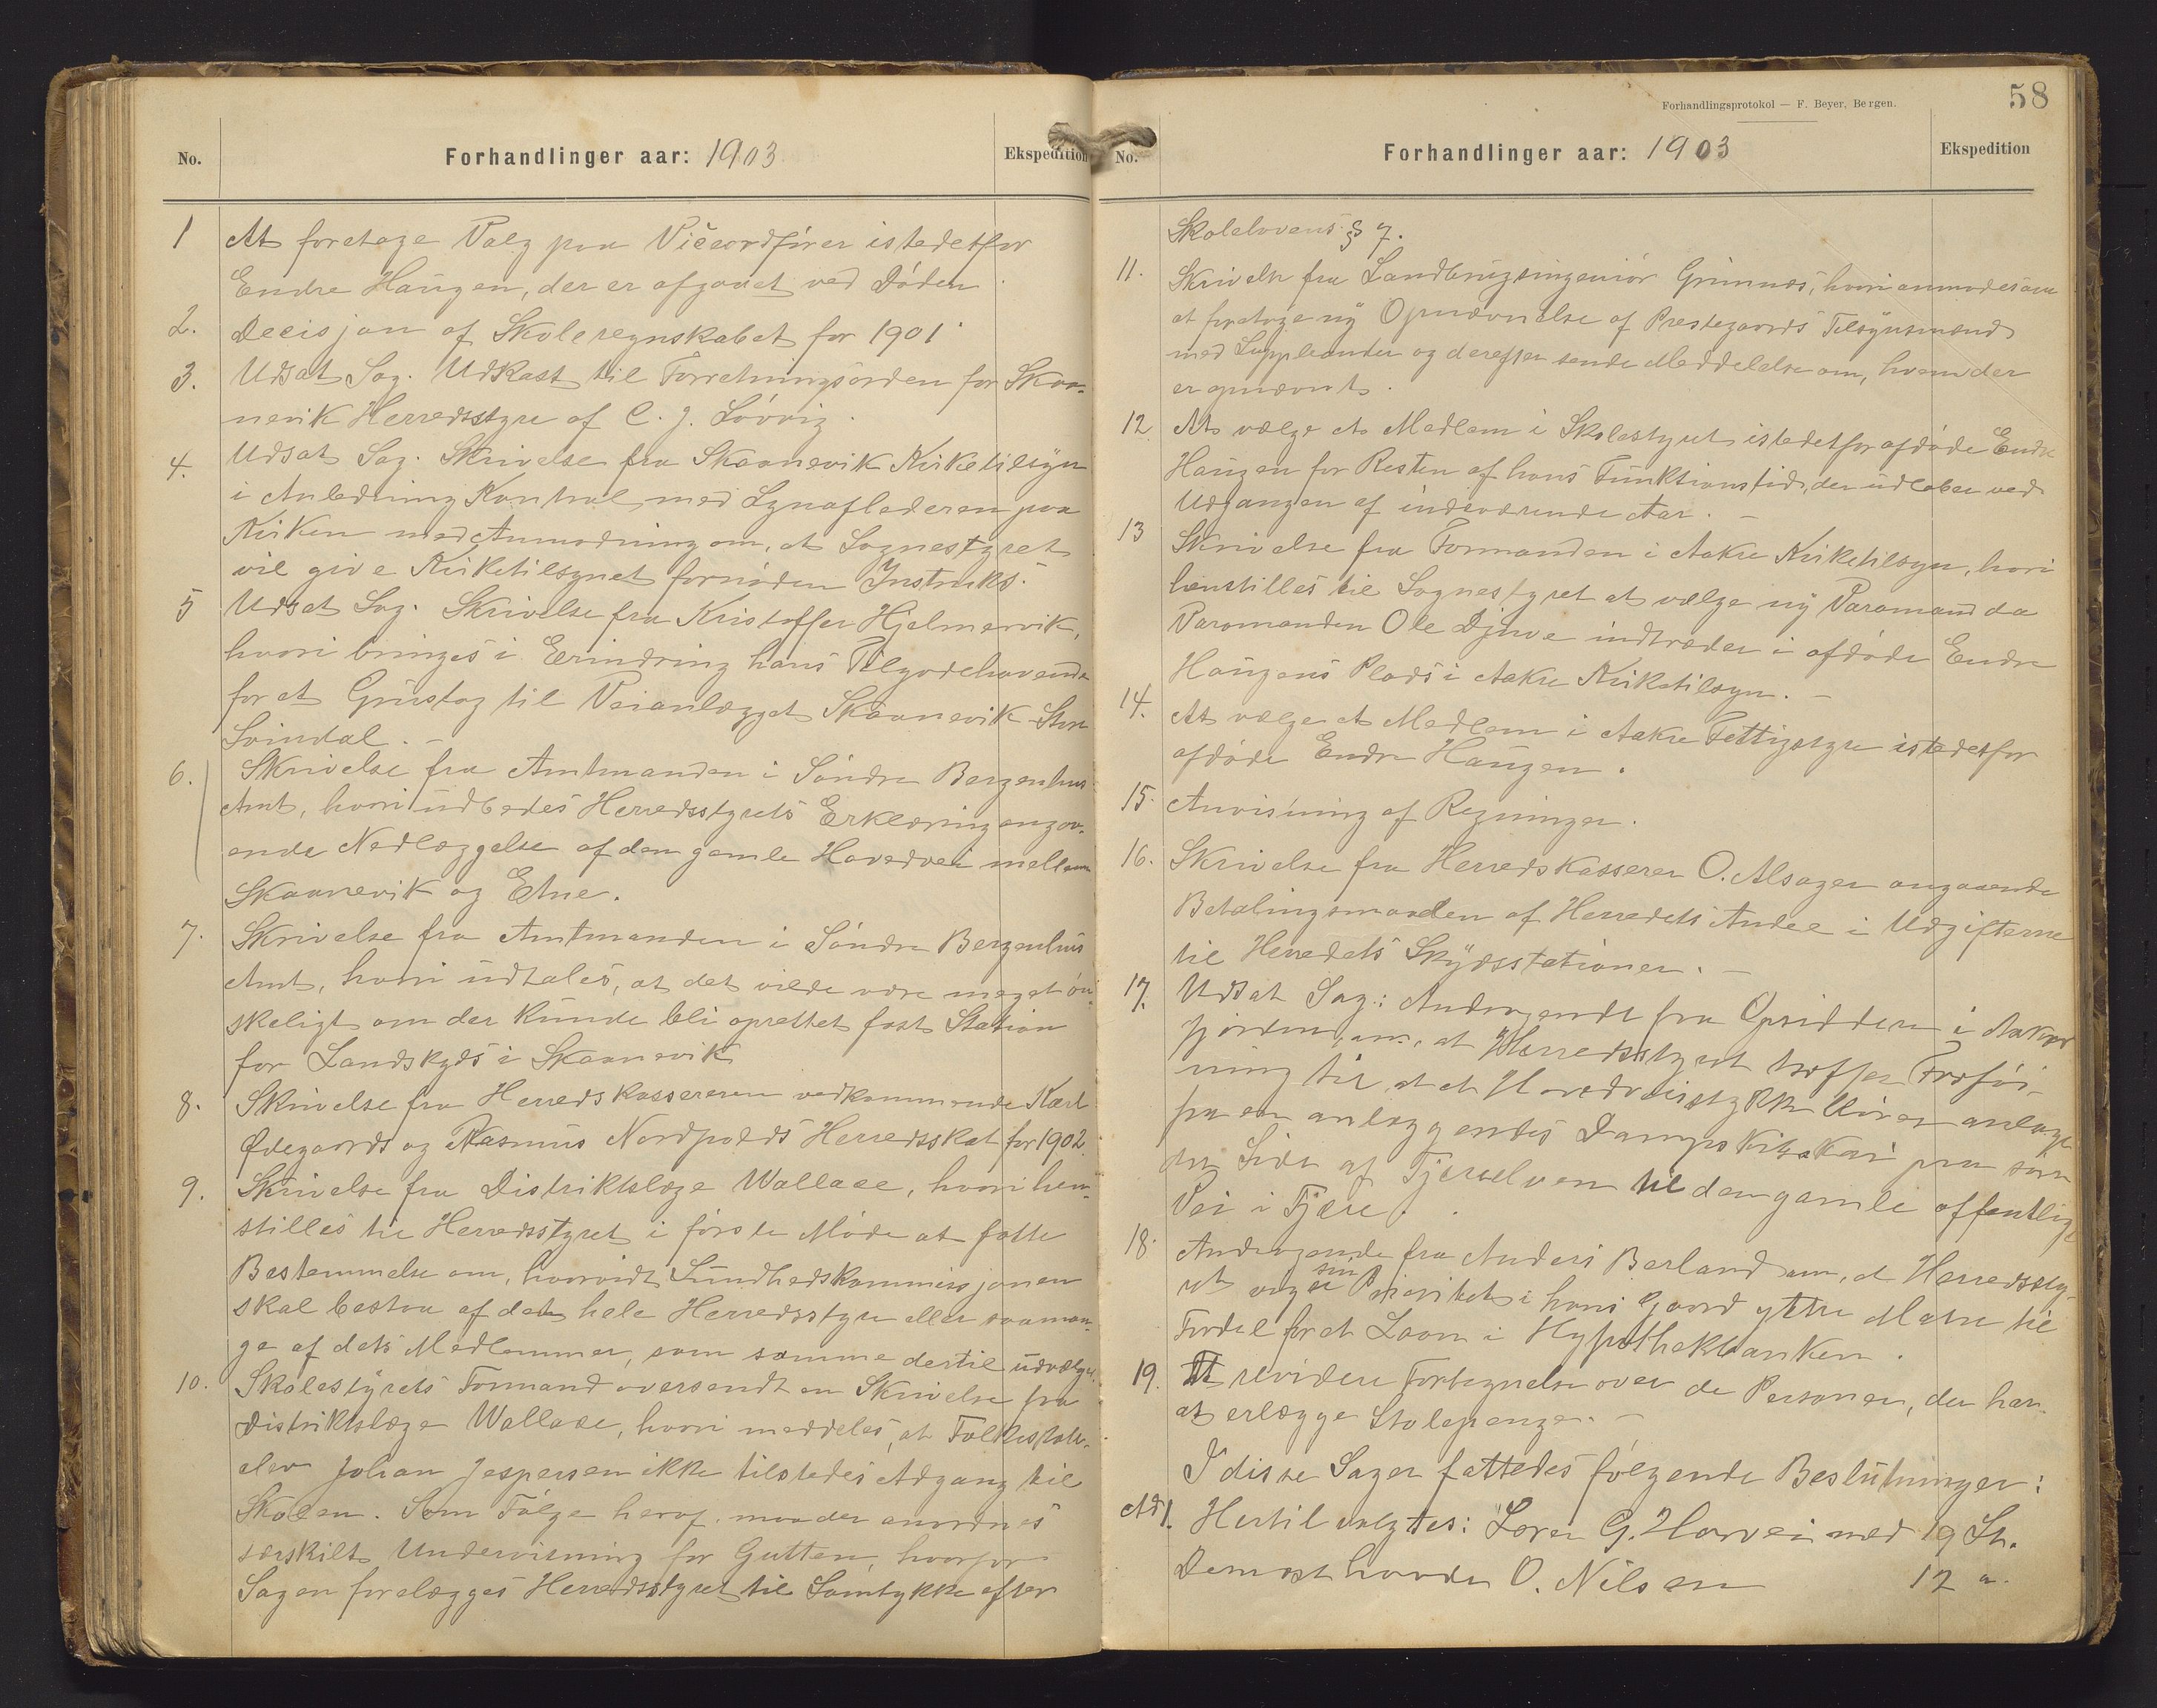 No.
Forhandlinger aar: 1903
Ekspedition
1 At foretage Valg paa Viceordfører istedetfor
Endre Haugen, der er afgaaet ved Døden
2. Decisjon af Skoleregnskabet for 1901
3. Udsat Sag. Udkast til Forretningsorden for Skaa-
nevik Herredsstyre af C. J. Løvvig.
4. Udsat Sag. Skrivelse fra Skaanevik Kirketilsyn
i Anledning Kontrol med Lynaflederen paa
Kirken med Anmodning om, at Sognestyret
vil give Kirketilsynet fornøden Instruks.
5 Udsat Sag. Skrivelse fra Kristoffer Hjelmervik,
hvori bringes i Erindring hans Tilgodehavende
for et Grustag til Veianlægget Skaanevik-Store
Svindal. –
6. Skrivelse fra Amtmanden i Søndre Bergenhus
Amt, hvori udbedes Herredsstyrets Erklæring angaa-
ende Nedlæggelse af den gamle Hovedvei mellem
Skaanevik og Etne.
7. Skrivelse fra Amtmanden i Søndre Bergenhus
Amt, hvori udtales, at det vilde være meget øn-
skeligt om der kunde bli oprettet fast Station
for Landskyds i Skaanevik
8. Skrivelse fra Herredskassereren vedkommende Karl
Ødegaards og Rasmus Nordpolds Herredsskat for 1902.
9. Skrivelse fra Distriktslæge Wallace, hvori hen-
stilles til Herredsstyret i første Møde at fatte
Bestemmelse om, hvorvidt Sundhedskommissjonen
skal bestaa af det hele Herredsstyre eller saaman-
ge af dets Medlemmer, som samme dertil udvælger.
10. Skolestyrets Formand oversendt en Skrivelse fra
Distriktslæge Wallace, hvori meddeles, at Folkeskole-
elev Johan Jespersen ikke tilstedes Adgang til
Skolen. Som Følge heraf maa der anordnes
særskilt Undervisning for Gutten, hvorfor
Sagen forelægges Herredsstyret til Samtykke efter
58
Forhandlingsprotokol — F. Beyer, Bergen.
No.
Forhandlinger aar: 1903
Ekspedition
Skolelovens § 7.
11. Skrivelse fra Landbrugsingeniør Grimnæs, hvori anmodes om
at foretage ny Opnævnelse af Prestegaards Tilsynsmænd
med Suppleanter og derefter sende Meddelelse om, hvem der
er opnævnt.
12. At vælge et Medlem i Skolestyret istedetfor afdøde Endre
Haugen for Resten af hans Funktionstid, der udløber ved
Udgangen af indeværende Aar. –
13 Skrivelse fra Formanden i Aakre Kirketilsyn, hvori
henstilles til Sognestyret at vælge ny Varamand da
Varamanden Ole Djuve indtræder i afdøde Endre
Haugens Plads i Aakre Kirketilsyn. –
14. At vælge et Medlem i Aakre Fattigstyre istedetfor
afdøde Endre Haugen.
15. Anvisning af Regninger.
16. Skrivelse fra Herredskasserer O. Alsager angaaende
Betalingsmaaden af Herredets Andel i Udgifterne
til Herredets Skydsstationer. –
17. Udsat Sag: Andragende fra Opsiddere i Aakre-
fjorden, om, at Herredsstyret træffer Forføi-
ning til at et Hovedveistykke bliver anlagt
fra en anlæggendes Dampskibskai paa søn-
dre Side af Fjæreelven til den gamle offentlige
Vei i Fjære.
18. Andragende fra Anders Berland om, at Herredssty-
ret viger sin Prioritet i hans Gaard ytre Matre til
Fordel for et Laan i Hypothekbanken.
19. At revidere Fortegnelse over de Personer, der har
at erlægge Stolepenge. –
I disse Sager fattedes følgende Beslutninger:
Ad 1. Hertil valgtes: Lærer G. Harvei med 19 St.
Dernæst havde O. Nilsen 12 "